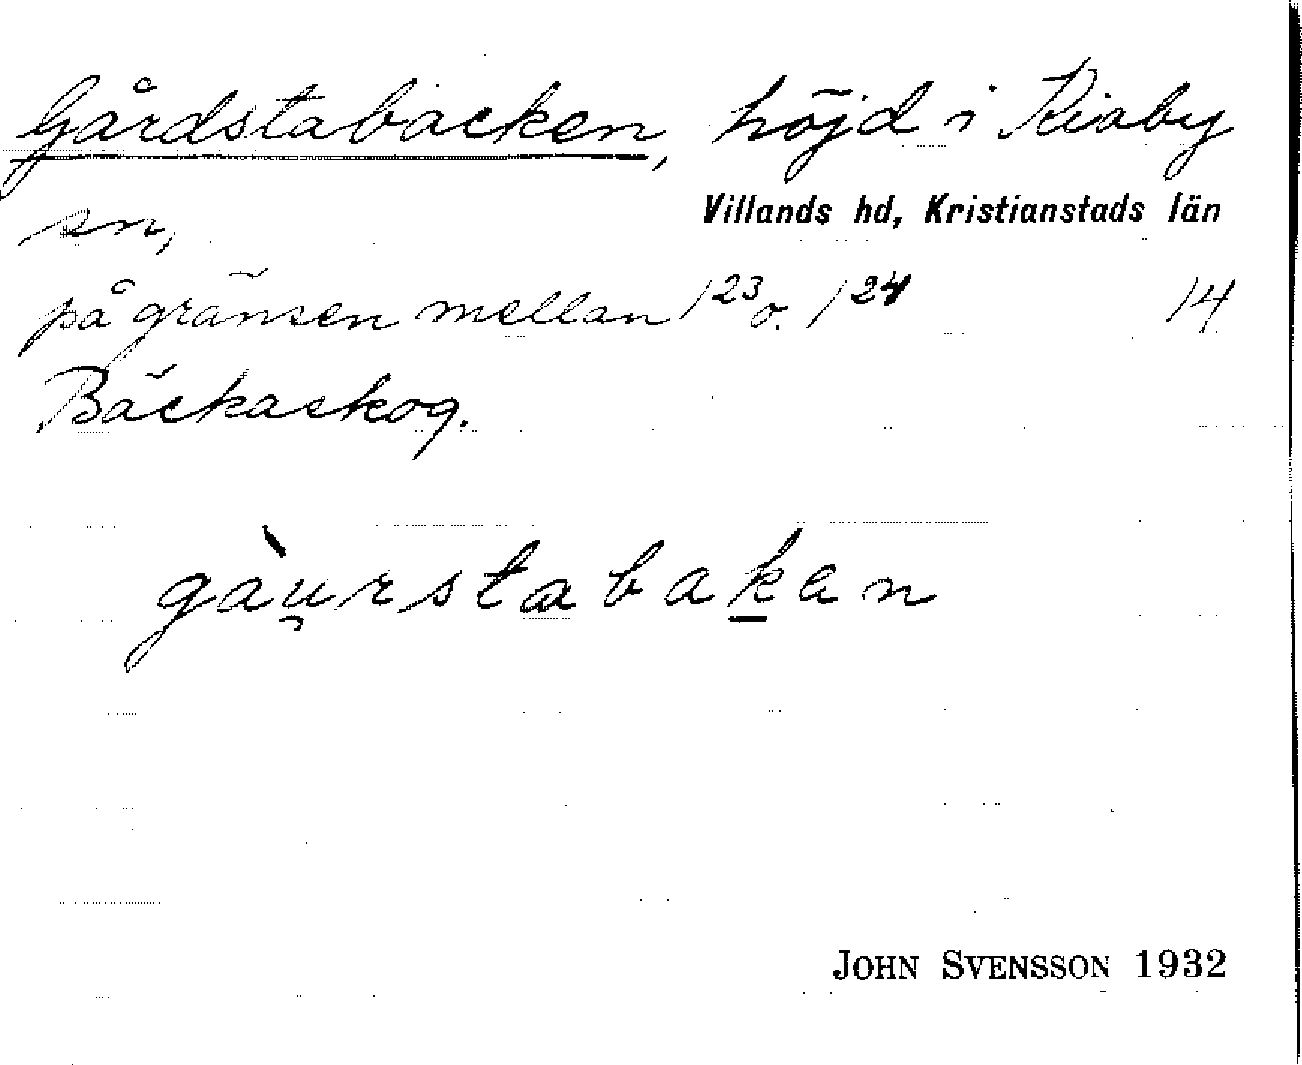 Gårdstabacken, höjd i Kiaby
sn,
Villands hd, Kristianstads län
på gränsen mellan 1²³ o. 1²⁴ 14
Bäckaskog.
gàu̯rstabakan
JOHN SVENSSON 1932